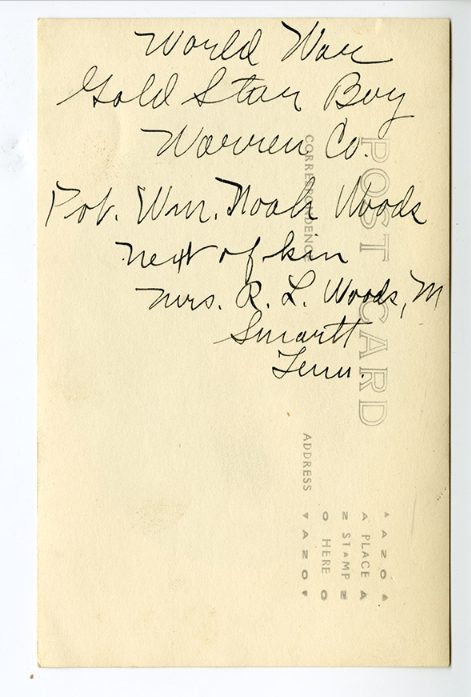 World War
Gold Star Boy
Warren Co.
Pvt. Wm. Noah Woods
next of kin
Mrs. R. L. Woods, M
Smartt
Tenn.
POST CARD
CORRESPONDENCE
ADDRESS
AZO
PLACE
STAMP
HERE
AZO